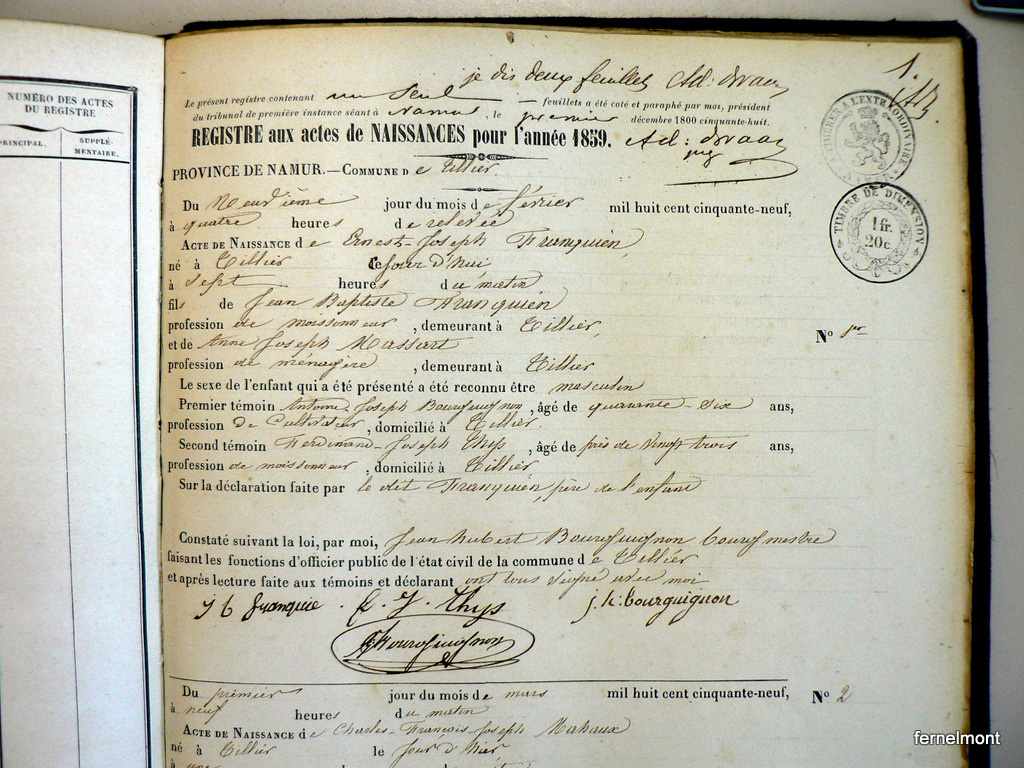 NUMÉRO DES ACTES
DU REGISTRE
PRINCIPAL.
SUPPLÉ-
MENTAIRE.
je dis deux feuillets Ad:
1.
Le présent registre contenant un seul feuillets a été coté et paraphé par moi, président
du tribunal de première instance séant à Namur, le premier décembre 1800 cinquante-huit.
REGISTRE aux actes de NAISSANCES pour l'année 1859. Ad:
PROVINCE DE NAMUR.—COMMUNE De Tillier.
TIMBRE DE DIMENSION
1 fr.
20 c.
Du Neuvième jour du mois de février mil huit cent cinquante-neuf,
à quatre heures de relevée
ACTE DE NAISSANCE de Ernest-Joseph Franquien,
né à Tillier ce jour d'hui
à sept heures du matin
fils de Jean Baptiste Franquien
profession de moissonneur, demeurant à Tillier,
No 1er
et de Anne Joseph Massart
profession de ménagère, demeurant à Tillier
Le sexe de l'enfant qui a été présenté a été reconnu être masculin
Premier témoin Antoine-Joseph Bourguignon, âgé de quarante-six ans,
profession de Cultivateur, domicilié à Tillier.
Second témoin Ferdinand-Joseph Thys, âgé de près de vingt trois ans,
profession de moissonneur, domicilié à Tillier.
Sur la déclaration faite par le dit Franquien, père de l'enfant
Constaté suivant la loi, par moi, Jean hubert Bourguignon bourgmestre
faisant les fonctions d'officier public de l'état civil de la commune de Tillier
et après lecture faite aux témoins et déclarant ont tous signé avec moi
J B franquie F. J. Thys j. h: bourguignon
Bourguignon
Du premier jour du mois de mars mil huit cent cinquante-neuf,
No 2
à neuf heures du matin
ACTE DE NAISSANCE de Charles-François-Joseph Mahaux
né à Tillier le jour d'hier
fernelmont